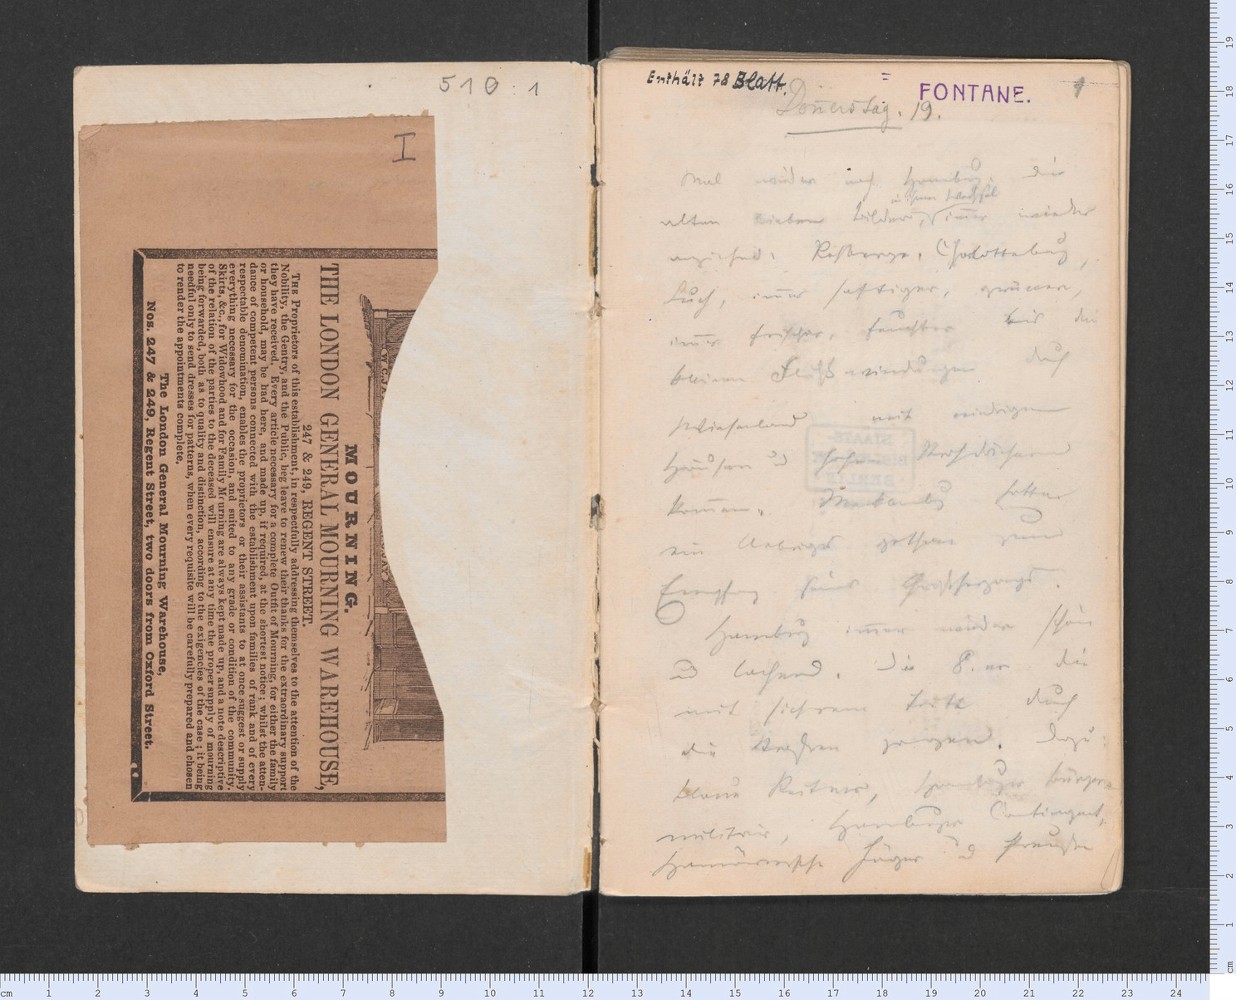 510:1
I
MOURNING.
THE LONDON GENERAL MOURNING WAREHOUSE,
247 & 249, REGENT STREET.
THE Proprietors of this establishment, in respectfully addressing themselves to the attention of the
Nobility, the Gentry, and the Public, beg leave to renew their thanks for the extraordinary support
they have received. Every article necessary for a complete Outfit of Mourning, for either the family
or household, may be had here, and made up, if required, at the shortest notice; whilst the atten-
dance of competent persons connected with the establishment upon families of rank and of every
respectable denomination, enables the proprietors or their assistants to at once suggest or supply
everything necessary for the occasion, and suited to any grade or condition of the community.
Skirts, &c., for Widowhood and for Family Mourning are always kept made up, and a note descriptive
of the relation of the parties to the deceased will ensure at any time the proper supply of mourning
being forwarded, both as to quality and distinction, according to the exigencies of the case; it being
needful only to send dresses for patterns, when every requisite will be carefully prepared and chosen
to render the appointments complete.
The London General Mourning Warehouse,
Nos. 247 & 249, Regent Street, two doors from Oxford Street.
Enthält 78 Blatt.
FONTANE.
1
Donerstag. 19.
Mal wieder nach Hamburg. Die
alten lieben Bilder, immer wieder
Charlottenburg,
immer saftiger, grüner,
immer frischer, feuchter bis die
kleinen Flußwindungen durch
Wiesenland mit niedrigen
Häusern u hohen Rohrdächern
kommen. Mecklenburg hatte
ein Uebriges gethan zum
Empfang seines Großherzogs.
Hamburg immer wieder schön
u lachend. Die 8.er die
mit sichrem Tritt durch
die Straßen zogen. Dazu
blaue Reiter, Hamburger Bürger-
militair, Hamburger Contingent,
Hannöversche Jäger u Preußen